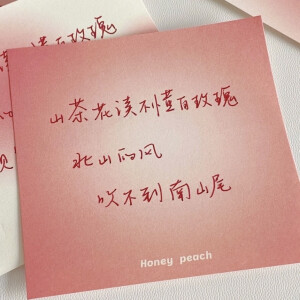 山茶花读不懂白玫瑰
北山的风
吹不到南山尾
Honey peach
玫瑰